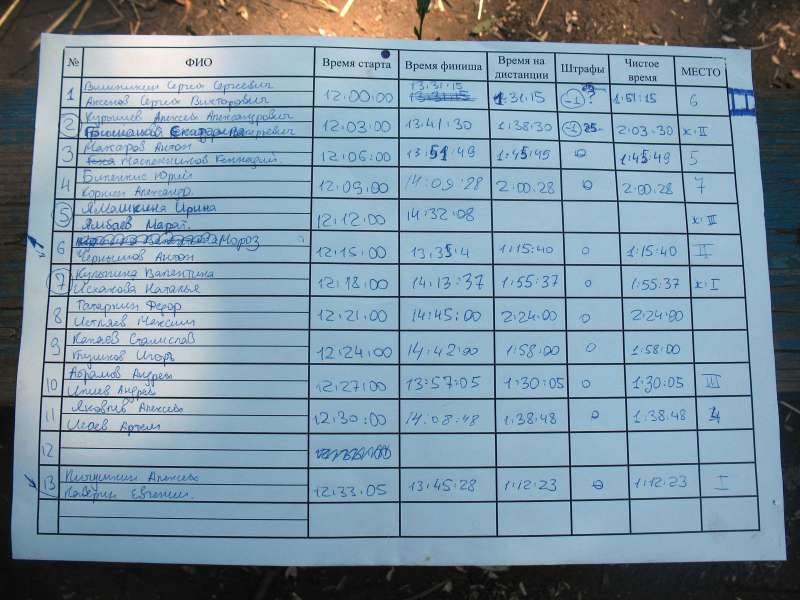 № ФИО Время старта Время финиша Время на дистанции Штрафы Чистое время МЕСТО
1 Сергей Сергеевич 13:31:15
Аксенов Сергей Викторович 12:00:00 1:31:15 -1 1:51:15 6
2 Курышев Алексей Александрович
12:03:00 13:41:30 1:38:30 2:03:30 ж.II
3 Макаров Антон
Масленников Геннадий. 12:06:00 13:51:49 1:45:49 0 1:45:49 5
4 Юрий
Корнеев Александр. 12:09:00 14:09:28 2:00:28 0 2:00:28 7
5 Ямашкина Ирина
Ямбаев Марат. 12:12:00 14:32:08 ж.III
6 Мороз
Чернышов Антон 12:15:00 1:15:40 0 1:15:40 II
7 Кулыгина Валентина
Исхакова Наталья 12:18:00 14:13:37 1:55:37 0 1:55:37 ж.I
8 Татаркин Федор
Истляев Максим 12:21:00 14:45:00 2:24:00 0 2:24:00
9 Канаев Станислав
Игорь 12:24:00 14:42:00 1:58:00 0 1:58:00
10 Абрамов Андрей
Андрей 12:27:00 13:57:05 1:30:05 0 1:30:05 III
11 Яковлев Алексей
Исаев Артем 12:30:00 14:08:48 1:38:48 0 1:38:48 4
12
13 Алексей
Лаверин Евгений. 12:33:05 13:45:28 1:12:23 0 1:12:23 I